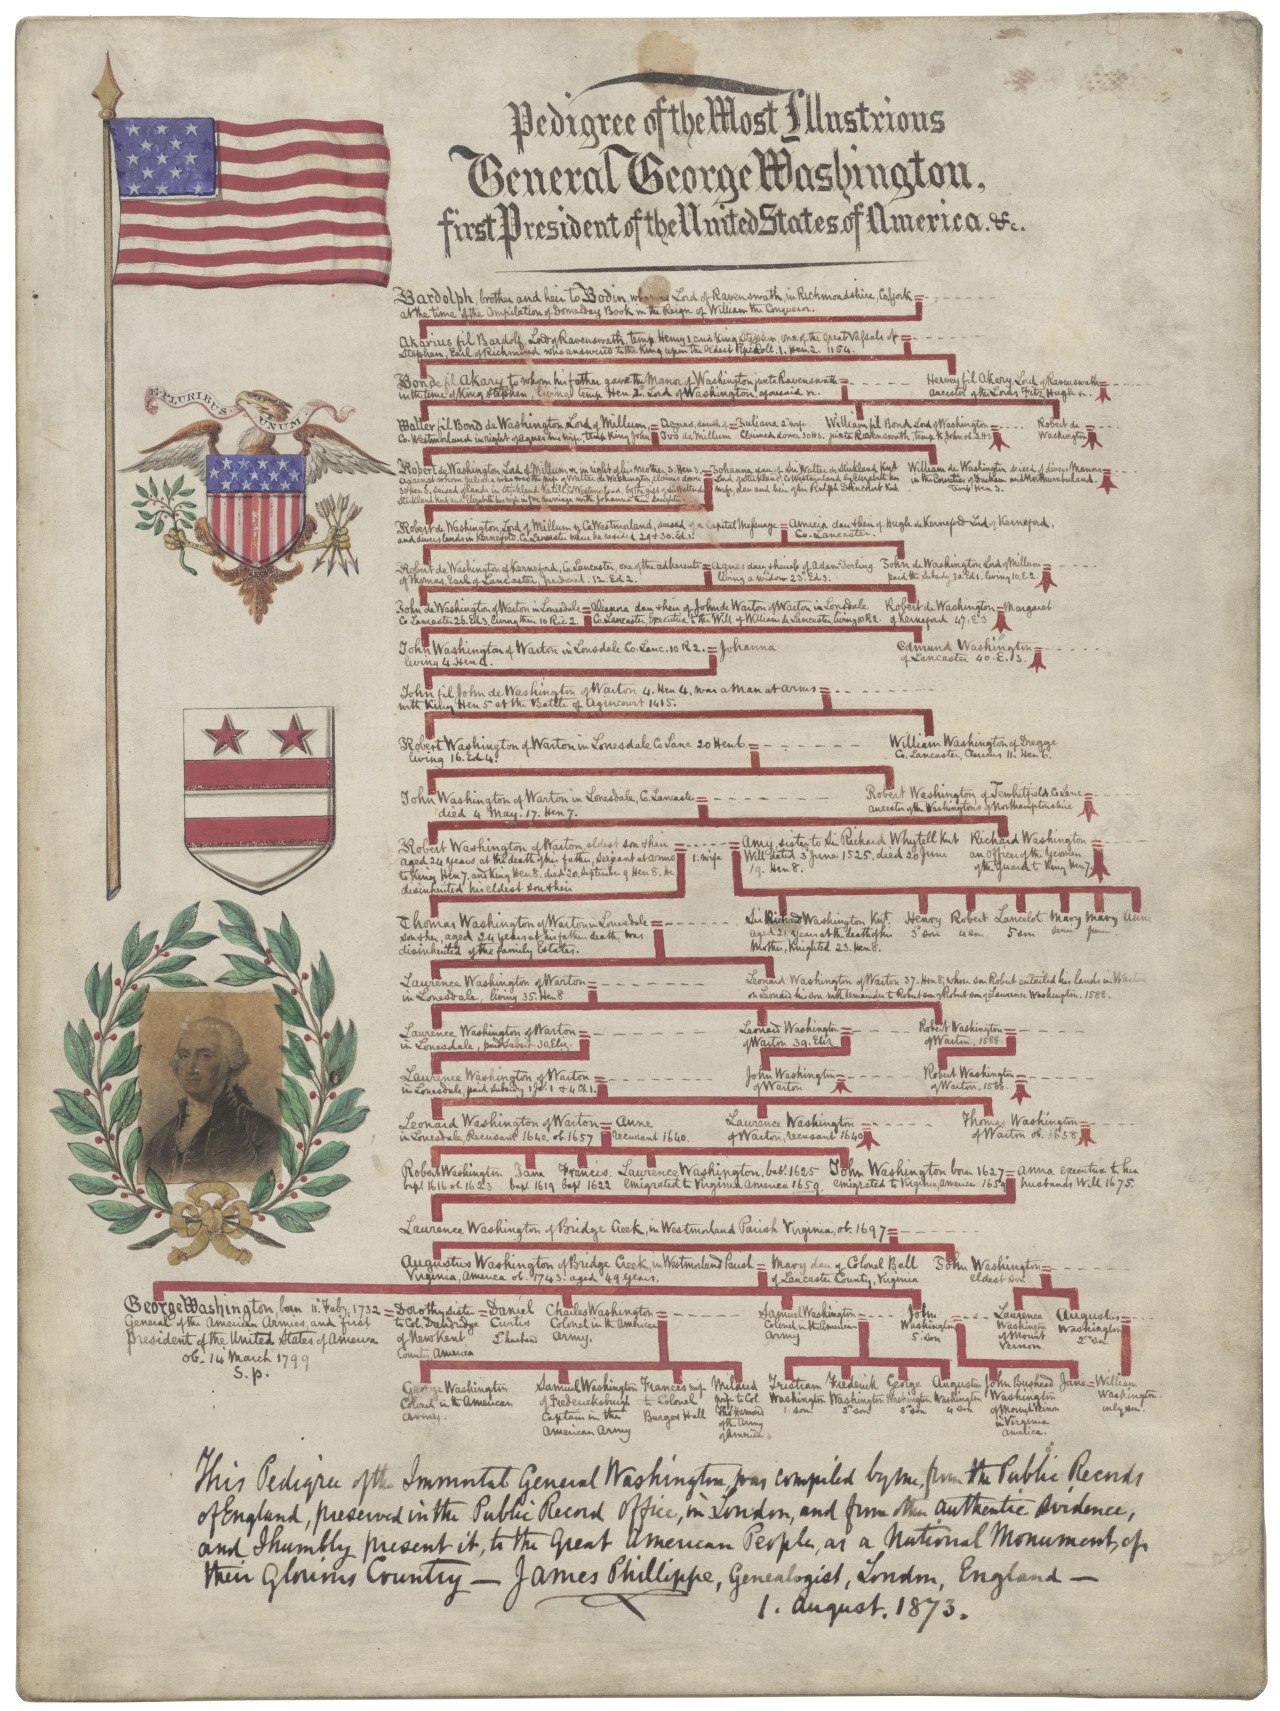 Pedigree of the Most Illustrious
General George Washington,
first President of the United States of America. &c.
E PLURIBUS UNUM
Bardolph, brother and heir to Bodin, who was Lord of Ravenswath, in Richmondshire, Co. York =
at the time of the Compilation of Domesday Book in the Reign of William the Conqueror.
Akarius fil Bardolf, Lord of Ravenswath, temp. Henry 1 and King Stephen, one of the great Vassals of =
Stephen, Earl of Richmond who answered to the King upon the Oldest Pipe Roll. 1. Hen 2. 1154.
Bonde fil Akary to whom his father gave the Manor of Washington juxta Ravenswath =
in the time of King Stephen, living temp. Hen 2. Lord of Washington, aforesaid &c.
Hervey fil Akary Lord of Ravenswath =
ancestor of the Lords Fitz Hugh &c.
Walter fil Bond de Washington Lord of Millum, =
Co. Westmorland in right of Agnes his wife temp King John
Agnes, dau of =
Juliana 2 wife
Claimed dower 30 H3.
William fil Bond Lord of Washington =
juxta Ravenswath, temp K John &
Robert de
Washington
Robert de Washington Lord of Millum in right of his mother, 3. Hen 3. =
Johanna dau of Sir Walter de Stickland Knt
Lord of Stickland Co Westmorland by Elizabeth his
wife, dau and heir of Sir Ralph Knt.
William de Washington seized of divers Manors =
in the Counties of Durham and Northumberland.
temp Hen 3.
Robert de Washington Lord of Millum Co Westmorland, seized of a Capital Messuage = Amicia dau & heir of Hugh de Kerneford Lord of Kerneford,
and divers lands in Kerneford, Co. Lancaster where he resided 29 & 30. Ed. 1.
Co. Lancaster.
Robert de Washington of Kerneford, Co. Lancaster, one of the adherents =
of Thomas, Earl of Lancaster, pardoned. 12. Ed 2.
Agnes dau & heir of Adam
living a widow 23. Ed 3.
John de Washington Lord of Millum =
paid the subsidy 30. Ed 1. living 10 E 2.
John de Washington of Warton in Lonesdale =
Co Lancaster 26. Ed 3. living then 10 Ric 2.
dau & heir of John de Warton of Warton in Lonsdale
Co. Lancaster, Executrix to the Will of William de Lancaster, living 10 R 2.
Robert de Washington = Margaret
of Kerneford 47. E 3
John Washington of Warton in Lonsdale Co. Lanc. 10 R 2. = Johanna
living 4 Hen 4.
Edmund Washington =
of Lancaster 40. E. 3.
John fil John de Washington of Warton 4. Hen 4, was a Man at Arms =
with King Hen 5 at the Battle of Agincourt 1415.
Robert Washington of Warton in Lonesdale Co Lanc 20 Hen 6. =
living 16. Ed 4.
William Washington of Dragge
Co. Lancaster, 11. Hen 6.
John Washington of Warton in Lonesdale, Co. Lancaster =
died 4 May. 17. Hen 7.
Robert Washington of Tewhitfeld, Co Lanc =
ancestor of the Washington's of Northamptonshire
Robert Washington of Warton, eldest son & heir =
aged 24 years at the death of his father, Serjeant at Arms
to King Hen 7. and King Hen 8. died 20. September 9 Hen 8. he
disinherited his eldest son & heir
1. wife
= Amy, sister to Sir Richard Whytell Knt
Will dated 3 June 1525, died 20 June
19. Hen 8.
Richard Washington =
an Officer of the Yeomen
of the Guard to King Hen 7.
Thomas Washington of Warton in Lonesdale =
son & he, aged 24 years at his father's death, was
disinherited of the family Estates.
Sir Richard Washington Knt.
aged 21 years at the death of his
Mother, Knighted 23. Hen 8.
Henry
3 son
Robert
4 son
Lancelot
5 son
Mary
senior
Mary
junior
Anne
Laurence Washington of Warton =
in Lonesdale, living 35. Hen 8
Leonard Washington of Warton 37. Hen 8, whose son Robert entailed his lands in Warton
on Leonard his son with remainder to Robert son of Robert son of Laurence Washington. 1588.
Laurence Washington of Warton =
in Lonesdale, paid subsidy 30. Eliz.
Leonard Washington =
of Warton 39. Eliz
Robert Washington =
of Warton. 1588.
Laurence Washington of Warton =
in Lonesdale, paid subsidy 1 Ja. 1 & 4 Ch 1.
John Washington =
of Warton
Robert Washington =
of Warton. 1588.
Leonard Washington of Warton = Anne
in Lonesdale, Recusant 1640. ob. 1657 recusant 1640.
Laurence Washington
of Warton, recusant 1640
Thomas Washington =
of Warton ob. 1658
Robert Washington
bapt 1616 ob. 1623
Jane
bapt 1619
Francis
bapt 1622
Laurence Washington, bapt. 1625
emigrated to Virginia America 1659.
John Washington born 1627 = Anna executrix to her
emigrated to Virginia, America 1659 husbands Will 1675.
Laurence Washington of Bridge Creek, in Westmorland Parish Virginia, ob. 1697 =
Augustus Washington of Bridge Creek, in Westmorland Parish = Mary dau of Colonel Ball
Virginia, America ob. 1743. aged 49 years. of Lancaster County, Virginia
John Washington =
eldest son
George Washington, born 11. Feby. 1732 =
General of the American Armies, and first
President of the United States of America
ob. 14 March 1799
S. p.
Dorothy sister =
to Col. Dandridge
of New Kent
County, America
Daniel
Curtis
1 husband
Charles Washington =
Colonel in the American
Army.
Samuel Washington =
Colonel in the American
Army
John
Washington =
5. son
Laurence
Washington
of Mount
Vernon.
Augustus =
Washington
2 son
George Washington
Colonel in the American
Army.
Samuel Washington
of Fredericksburgh
Captain in the
American Army
Frances wife
to Colonel
Burges Hall
Mildred
wife to Col.
of the Army
of America.
Tristram
Washington
1. son.
Frederick
Washington
2 son
George
Washington
3 son
Augustus
Washington
4 son
John Bushead
Washington
of Mount Vernon
in Virginia
America.
Jane = William
Washington.
only son.
This Pedigree of the Immortal General Washington, was compiled by me, from the Public Records
of England, preserved in the Public Record Office, in London, and from other authentic Evidence,
and I humbly present it, to the Great American People, as a National Monument, of
their Glorious Country — James Phillippe, Genealogist, London, England —
1. August. 1873.